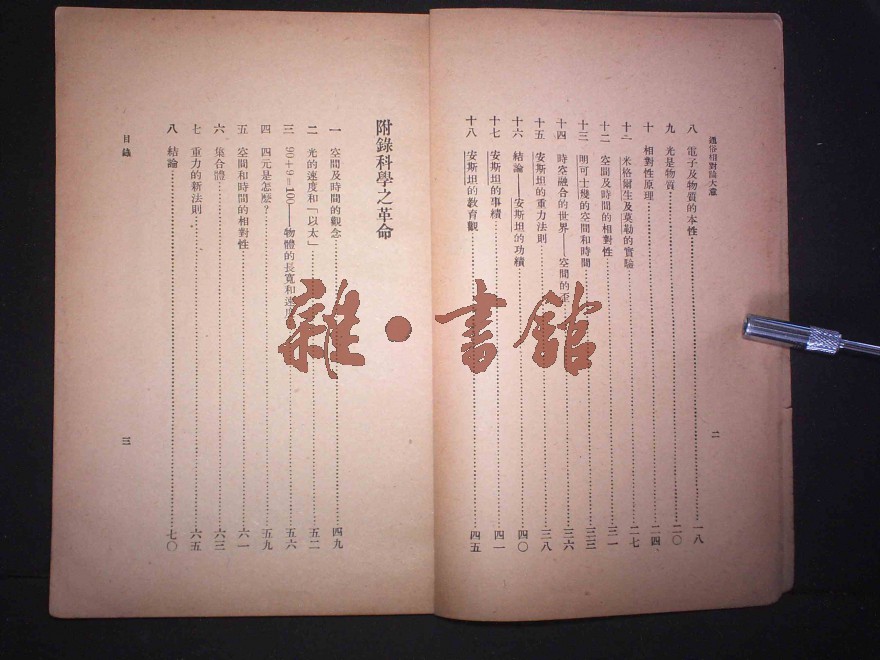 通俗相對論大意
八　電子及物質的本性……一八
九　光是物質……二〇
十　相對性原理……二四
十一　米格爾生及莫勒的實驗……二七
十二　空間及時間的相對性……三一
十三　明可士幾的空間和時間……三三
十四　時空融合的世界——空間的歪……三六
十五　安斯坦的重力法則……三八
十六　結論——安斯坦的功績……四〇
十七　安斯坦的事績……四一
十八　安斯坦的教育觀……四五
二
附錄科學之革命
一　空間及時間的觀念……四九
二　光的速度和「以太」……五二
三　90+9=100——物體的長寬和速度……五六
四　四元是怎麼？……五九
五　空間和時間的相對性……六一
六　集合體……六三
七　重力的新法則……六五
八　結論……七〇
目錄
三
雜·書館